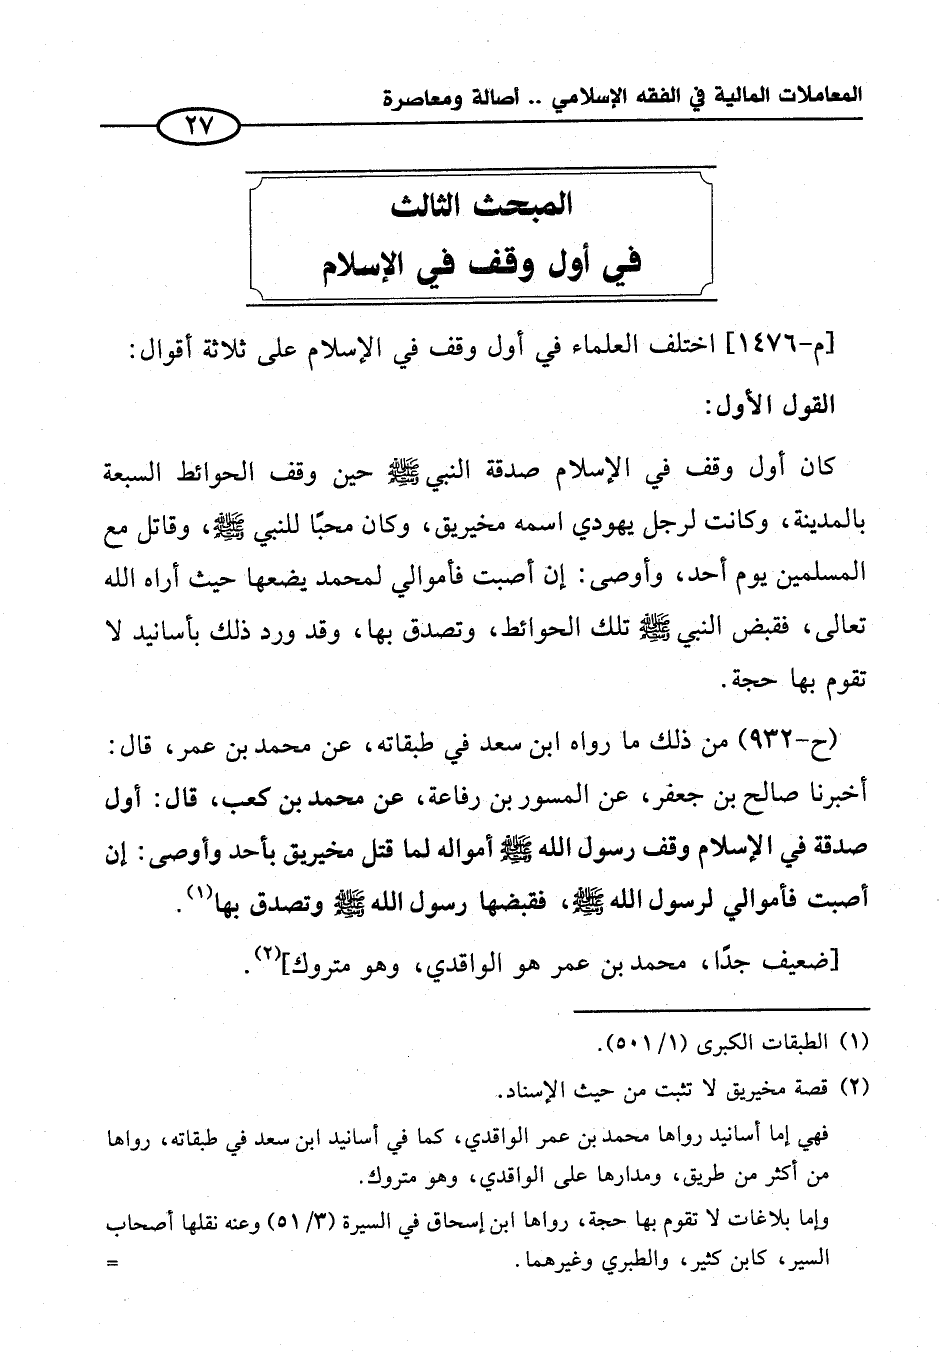 المعاملات المالية في الفقه الإسلامي .. أصالة ومعاصرة
٢٧
المبحث الثالث
في أول وقف في الإسلام
[م-١٤٧٦] اختلف العلماء في أول وقف في الإسلام على ثلاثة أقوال:
القول الأول:
كان أول وقف في الإسلام صدقة النبي ﷺ حين وقف الحوائط السبعة
بالمدينة، وكانت لرجل يهودي اسمه مخيريق، وكان محبًا للنبي ﷺ، وقاتل مع
المسلمين يوم أحد، وأوصى: إن أصبت فأموالي لمحمد يضعها حيث أراه الله
تعالى، فقبض النبي ﷺ تلك الحوائط، وتصدق بها، وقد ورد ذلك بأسانيد لا
تقوم بها حجة.
(ح-٩٣٢) من ذلك ما رواه ابن سعد في طبقاته، عن محمد بن عمر، قال:
أخبرنا صالح بن جعفر، عن المسور بن رفاعة، عن محمد بن كعب، قال: أول
صدقة في الإسلام وقف رسول الله ﷺ أمواله لما قتل مخيريق بأحد وأوصى: إن
أصبت فأموالي لرسول الله ﷺ، فقبضها رسول الله ﷺ وتصدق بها(١).
[ضعيف جدًا، محمد بن عمر هو الواقدي، وهو متروك](٢).
(١) الطبقات الكبرى (١/ ٥٠١).
(٢) قصة مخيريق لا تثبت من حيث الإسناد.
فهي إما أسانيد رواها محمد بن عمر الواقدي، كما في أسانيد ابن سعد في طبقاته، رواها
من أكثر من طريق، ومدارها على الواقدي، وهو متروك.
وإما بلاغات لا تقوم بها حجة، رواها ابن إسحاق في السيرة (٣/ ٥١) وعنه نقلها أصحاب
السير، كابن كثير، والطبري وغيرهما. =